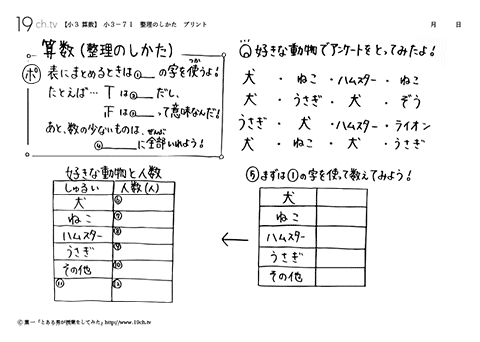 19 ch.tv 【小3 算数】 小3-71 整理のしかた プリント 月 日
算数(整理のしかた)
ポ 表にまとめるときは①__の字を使うよ!
たとえば… 丅は②__だし、
正は③__って意味なんだ!
あと、数の少ないものは、ぜんぶ
④__に全部いれよう!
Q 好きな動物でアンケートをとってみたよ!
犬 ・ ねこ ・ ハムスター ・ ねこ
犬 ・ うさぎ ・ 犬 ・ ぞう
うさぎ ・ 犬 ・ ハムスター ・ ライオン
犬 ・ ねこ ・ 犬 ・ うさぎ
好きな動物と人数
しゅるい 人数(人)
犬 ⑥
ねこ ⑦
ハムスター ⑧
うさぎ ⑨
その他 ⑩
⑪ ⑫
⑤まずは①の字を使って数えてみよう!
犬
ねこ
ハムスター
うさぎ
その他
←
© 葉一「とある男が授業をしてみた」http://www.19ch.tv